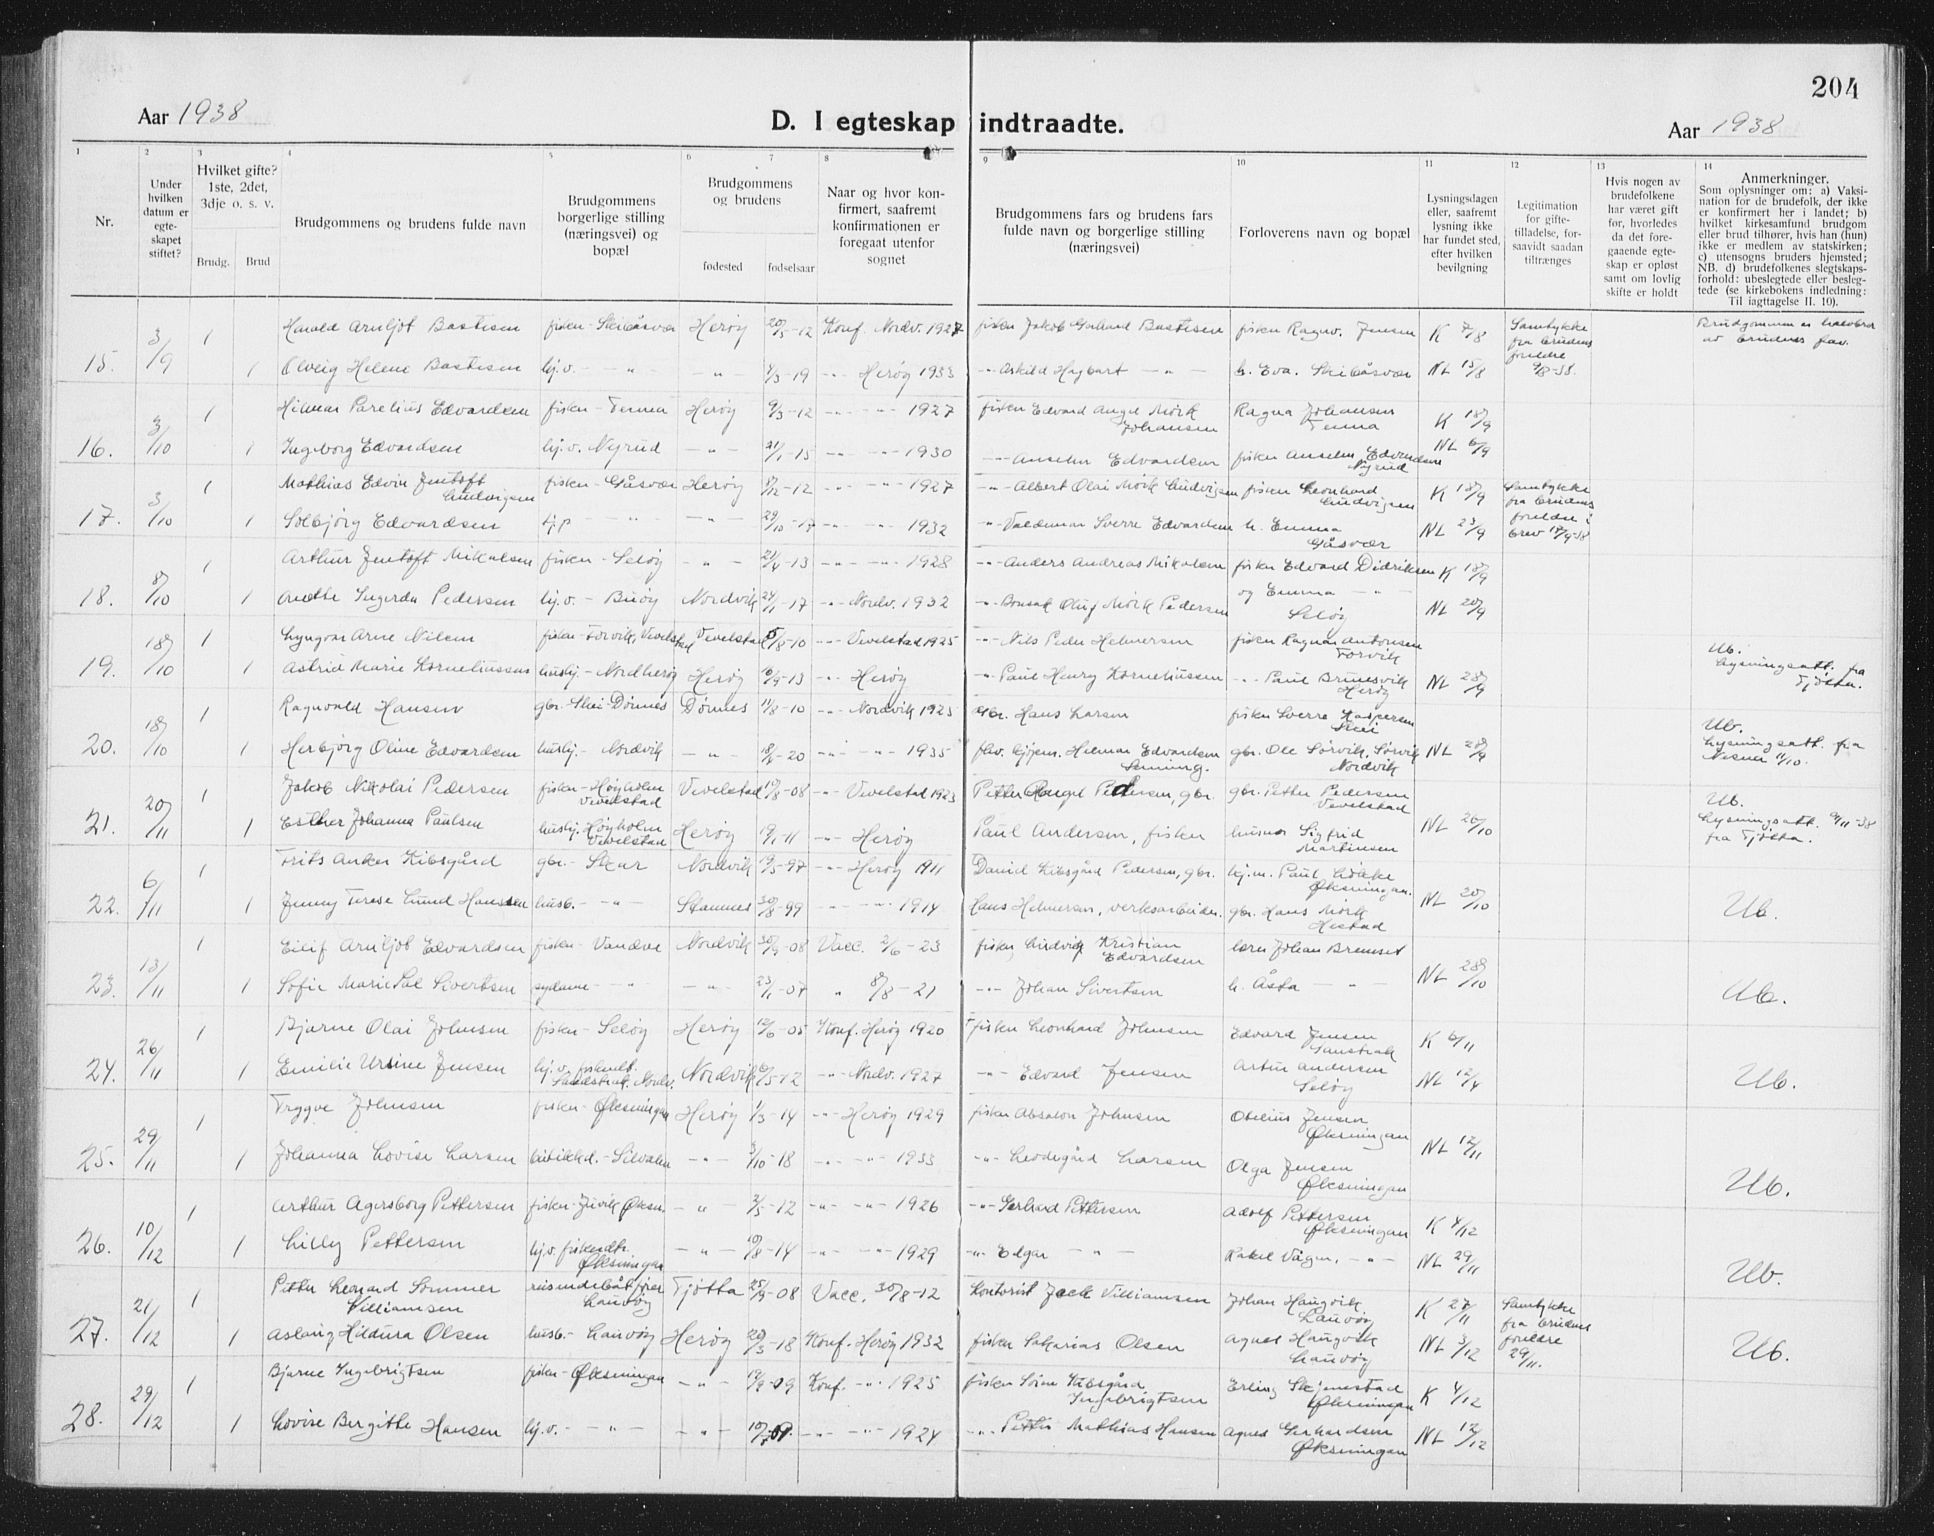 204
Aar 1938
D. I egteskap indtraadte.
Aar 1938
1 2 3 4 5 6 7 8 9 10 11 12 13 14
Nr.
Under hvilken datum er egte-skapet stiftet?
Hvilket gifte? 1ste, 2det, 3dje o. s. v.
Brudg. Brud
Brudgommens og brudens fulde navn
Brudgommens borgerlige stilling (næringsvei) og bopæl
Brudgommens og brudens
fødested fødselsaar
Naar og hvor kon-firmert, saafremt konfirmationen er foregaat utenfor sognet
Brudgommens fars og brudens fars fulde navn og borgerlige stilling (næringsvei)
Forloverens navn og bopæl
Lysningsdagen eller, saafremt lysning ikke har fundet sted, efter hvilken bevilgning
Legitimation for gifte-tilladelse, for-saavidt saadan tiltrænges
Hvis nogen av brudefolkene har været gift før, hvorledes da det fore-gaaende egte-skap er opløst samt om lovlig skifte er holdt
Anmerkninger.
Som oplysninger om: a) Vaksi-nation for de brudefolk, der ikke er konfirmert her i landet; b) hvilket kirkesamfund brudgom eller brud tilhører, hvis han (hun) ikke er medlem av statskirken; c) utensogns bruders hjemsted; NB. d) brudefolkenes slegtskaps-forhold: ubeslegtede eller besleg-tede (se kirkebokens indledning: Til iagttagelse II. 10).
15. 3/9 1 Harald Arnljot Bastesen fisker - Skibåsvær Herøy 20/5-12 Konf. Nordv. 1927 fisker Jakob Gerhard Bastesen fisker Ragnv. Jensen K 7/8 Samtykke fra brudens foreldre 4/8-38. Brudgommen er halvbror av brudens far.
1 Olveig Helene Bastesen hj.v. - " - - " - 4/3-19 - " - Herøy 1933 - " - Askild Hagbart - " - h. Eva. Skibåsvær NL 15/8
16. 3/10 1 Hilmar Parelius Edvardsen fisker - Tenna Herøy 9/3-12 - " - " - 1927 fisker Edvard Angel Mørk Johansen Ragna Johansen Tenna K 18/9
1 Ingeborg Edvardsen hj.v. Nyrud - " - 21/1-15 - " - " - 1930 - " - Anselm Edvardsen fisker Anselm Edvardsen Nyrud NL 6/9
17. 3/10 1 Mathias Edvin Jentoft Ludvigsen fisker - Gåsvær Herøy 8/12-12 - " - " - 1927 - " - Albert Olai Mørk Ludvigsen fisker Leonhard Ludvigsen K 18/9 Samtykke fra brudens foreldre i brev 17/9-38
1 Solbjørg Edvardsen tj.p - " - - " - 29/10-17 - " - " - 1932 - " - Valdemar Sverre Edvardsen h. Emma Gåsvær NL 23/9
18. 8/10 1 Arthur Jentoft Mikalsen fisker - Seløy - " - 21/4-13 - " - " - 1928 - " - Anders Andreas Mikalsen fisker Edvard Didriksen K 18/9
1 Anethe Ingerda Pedersen hj.v. - Buøy Nordvik 24/1-17 - " - Nordv. 1932 - " - Oluf Mørk Pedersen og Emma - " - Seløy NL 20/9
19. 18/10 1 Lyngvar Arne Nilsen fisker - Forvik, Vevelstad Vevelstad 5/8-10 - " - Vevelstad 1925 - " - Nils Peder Helmersen fisker Ragnar Antonsen Forvik
1 Astrid Marie Korneliussen huslig. - Nordherøy Herøy 10/9-13 - " - Herøy - " - Paul Henry Korneliussen - " - Paul Brunesvik Herøy NL 28/9 Ub. Lysningsatt. fra Tjøtta.
20. 18/10 1 Ragnvald Hansen gbr. - Skei - Dønnes Dønnes 11/8-10 - " - Nordvik 1925 gbr. Hans Larsen fisker Sverre Kaspersen Skei
1 Herbjørg Oline Edvardsen huslig. - Nordvik - " - 18/4-20 - " - " - 1935 Hilmar Edvardsen gbr. Ole Sørvik, Sørvik Nordvik NL 28/9 Ub. Lysningsatt. fra Nesna 11/10.
21. 20/11 1 Jakob Nikolai Pedersen fisker - Høyholm Vevelstad Vevelstad 10/8-08 - " - Vevelstad 1923 Petter Angel Pedersen, gbr. gbr. Petter Pedersen Vevelstad
1 Esther Johanna Paulsen huslig. Høyholm Vevelstad Herøy 19/1 11 - " - Herøy Paul Andersen, fisker husmor Sigfrid Martinsen NL 20/10 Ub. Lysningsatt. 9/11-38 fra Tjøtta.
22. 6/11 1 Frits Anker Kibsgård gbr. - Skar Nordvik 19/5-97 - " - Herøy 1911 Daniel Kibsgård Pedersen, gbr. hj.m. Paul Løkke Øksningan.
1 Jenny Terese Lund Hansen husb. - " - Stamnes 30/8-99 - " - " - 1914 Hans Helmersen, verksarbeider. gbr. Hans Mørk Hestad NL 20/10 Ub.
23. 13/11 1 Eilif Arnljot Edvardsen fisker - Vandve Nordvik 30/9-08 Vacc. 2/6-23 fisker Ludvig Kristian Edvardsen lærer Johan Bremset
1 Sofie Marie Sivertsen sydame - " - - " - 23/1-07 " 8/8-21 - " - Johan Sivertsen h. Åsta - " - NL 28/10 Ub.
24. 26/11 1 Bjarne Olai Johnsen fisker - Seløy Herøy 12/6-05 Konf. Herøy 1920 fisker Leonhard Johnsen Edvard Jensen Sandstrak K 6/11
1 Emilie Ursine Jensen hj.v. fiskerdt. Sandstrak, Nordv. Nordvik 10/5-12 - " - Nordv. 1927 - " - Edvard Jensen Artur Andersen Seløy NL 12/4 Ub.
25. 29/11 1 Trygve Johnsen fisker - Øksningan Herøy 1/3-14 - " - Herøy 1929 fisker Absalon Johnsen Otelius Jensen Øksningan
1 Johanna Lovise Larsen butikkd. - Silvalen - " - 3/10-18 - " - " - 1933 - " - Leodegård Larsen Olga Jensen Øksningan NL 12/11 Ub.
26. 10/12 1 Arthur Agersborg Pettersen fisker - Juvik Øksn. - " - 2/5-12 - " - " - 1926 - " - Gerhard Pettersen Adolf Pettersen Øksningan K 4/12
1 Lilly Pettersen hj.v. fiskerdt. Øksningan - " - 10/8-14 - " - " - 1929 - " - Edgar - " - Rakel Vågan, - " - NL 29/11 Ub.
27. 21/12 1 Petter Leonard Sommer Villiamsen Lauvøy Tjøtta 25/9-08 Vacc. 30/8-12 kontorist Jack Villiamsen Johan Haugvik Lauvøy K 27/11 Samtykke fra brudens foreldre 29/11.
1 Aslaug Hildura Olsen husb. - Lauvøy Herøy 20/3-18 Konf. Herøy 1932 fisker Sakarias Olsen Agnes Haugvik Lauvøy NL 3/12 Ub.
28. 29/12 1 Bjarne Ingebrigtsen fisker - Øksningan - " - 19/9-09 Konf. - " - 1925 fisker Søren Kibsgård Ingebrigtsen Erling Skjemestad Øksningan K 4/12
1 Lovise Bergitte Hansen hj.v. - " - - " - 10/7 09 - " - " - 1924 - " - Petter Mathias Hansen Agnes Gerhardsen Øksningan NL 12/12